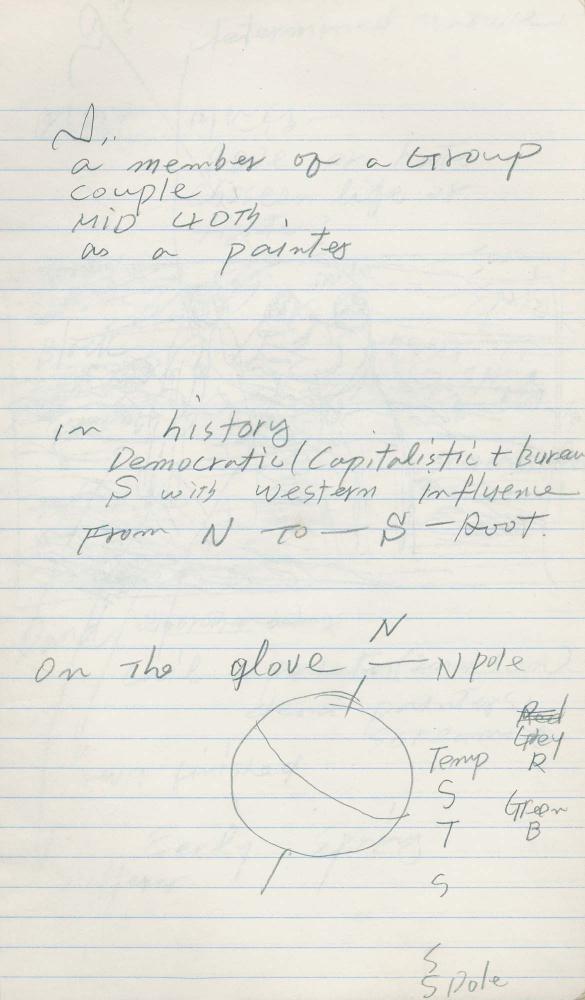 N..
a member of a Group
couple
MID 40Th.
as a painter
in history
Democratic (Capitalistic + Bureau
S with western Influence
From N - To - S - Root.
N
On The glove — N pole
Red
Grey
Temp R
S
Green
T B
S
S
S Pole